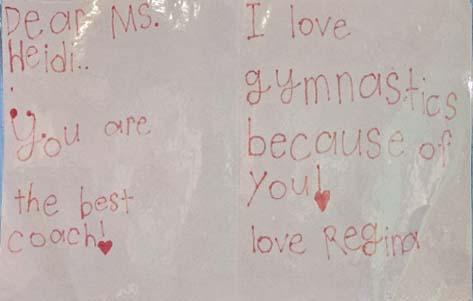 Dear Ms.
Heidi..
You are
the best
coach!
I love
gymnastics
because of
you!
love Regina